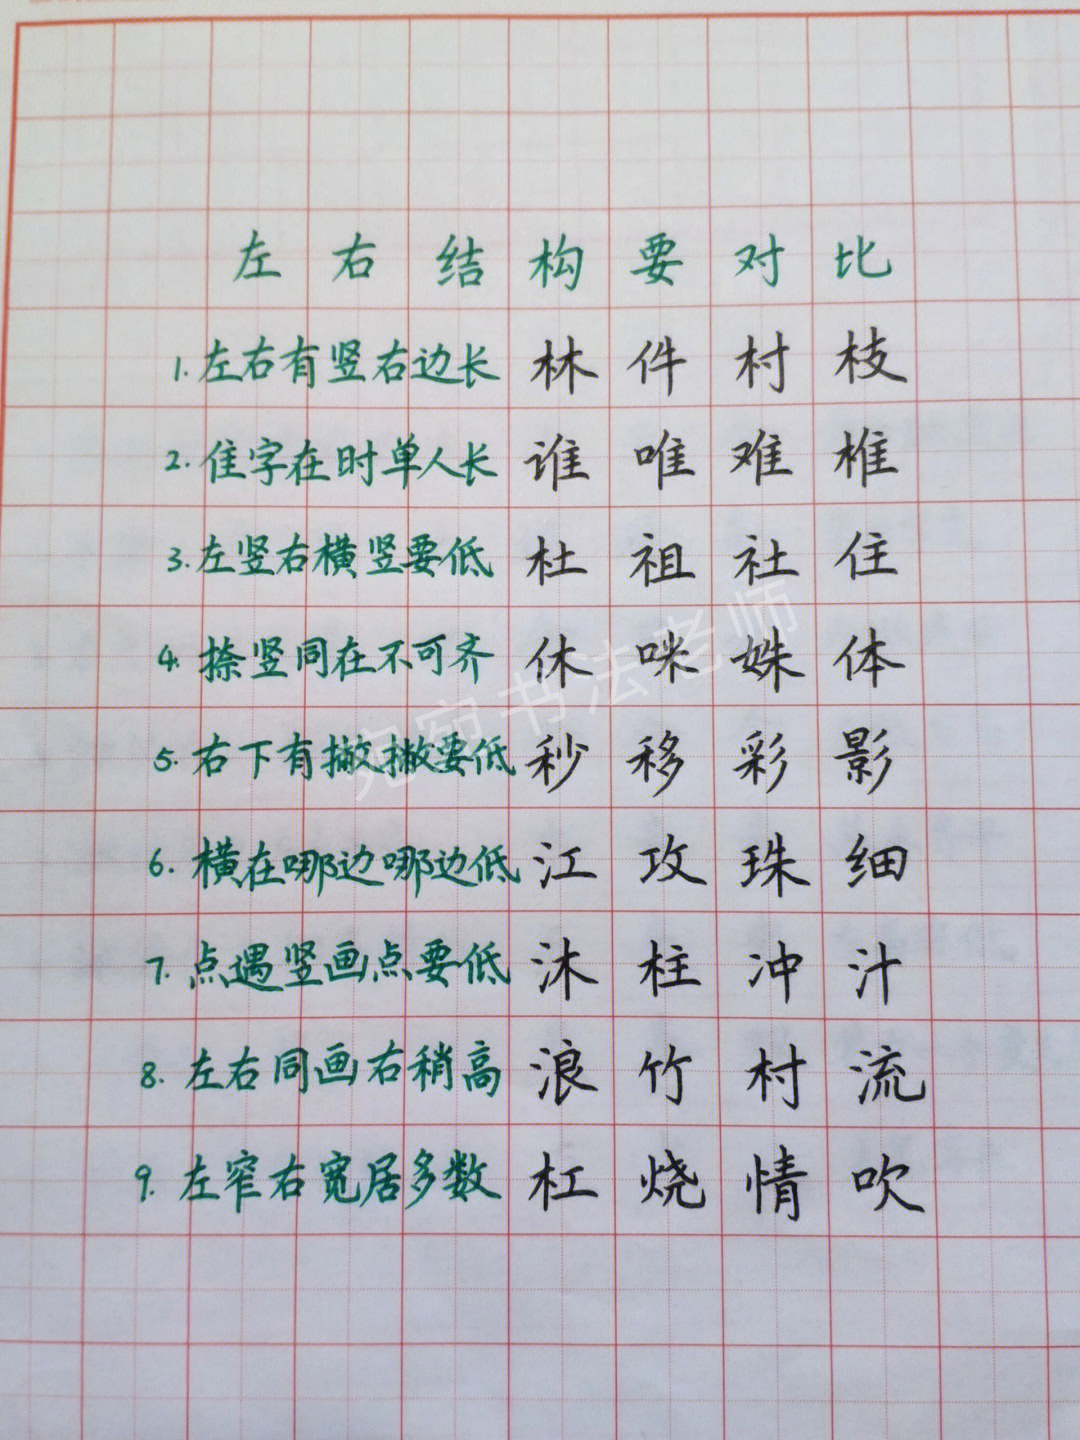 左右结构要对比
1.左右有竖右边长 林件村枝
2.隹字在时单人长 谁唯难椎
3.左竖右横竖要低 杜祖社住
4.捺竖同在不可齐 休咪姝体
5.右下有撇撇要低 秒移彩影
6.横在哪边哪边低 江攻珠细
7.点遇竖画点要低 沐柱冲汁
8.左右同画右稍高 浪竹村流
9.左窄右宽居多数 杠烧情吹
书法老师